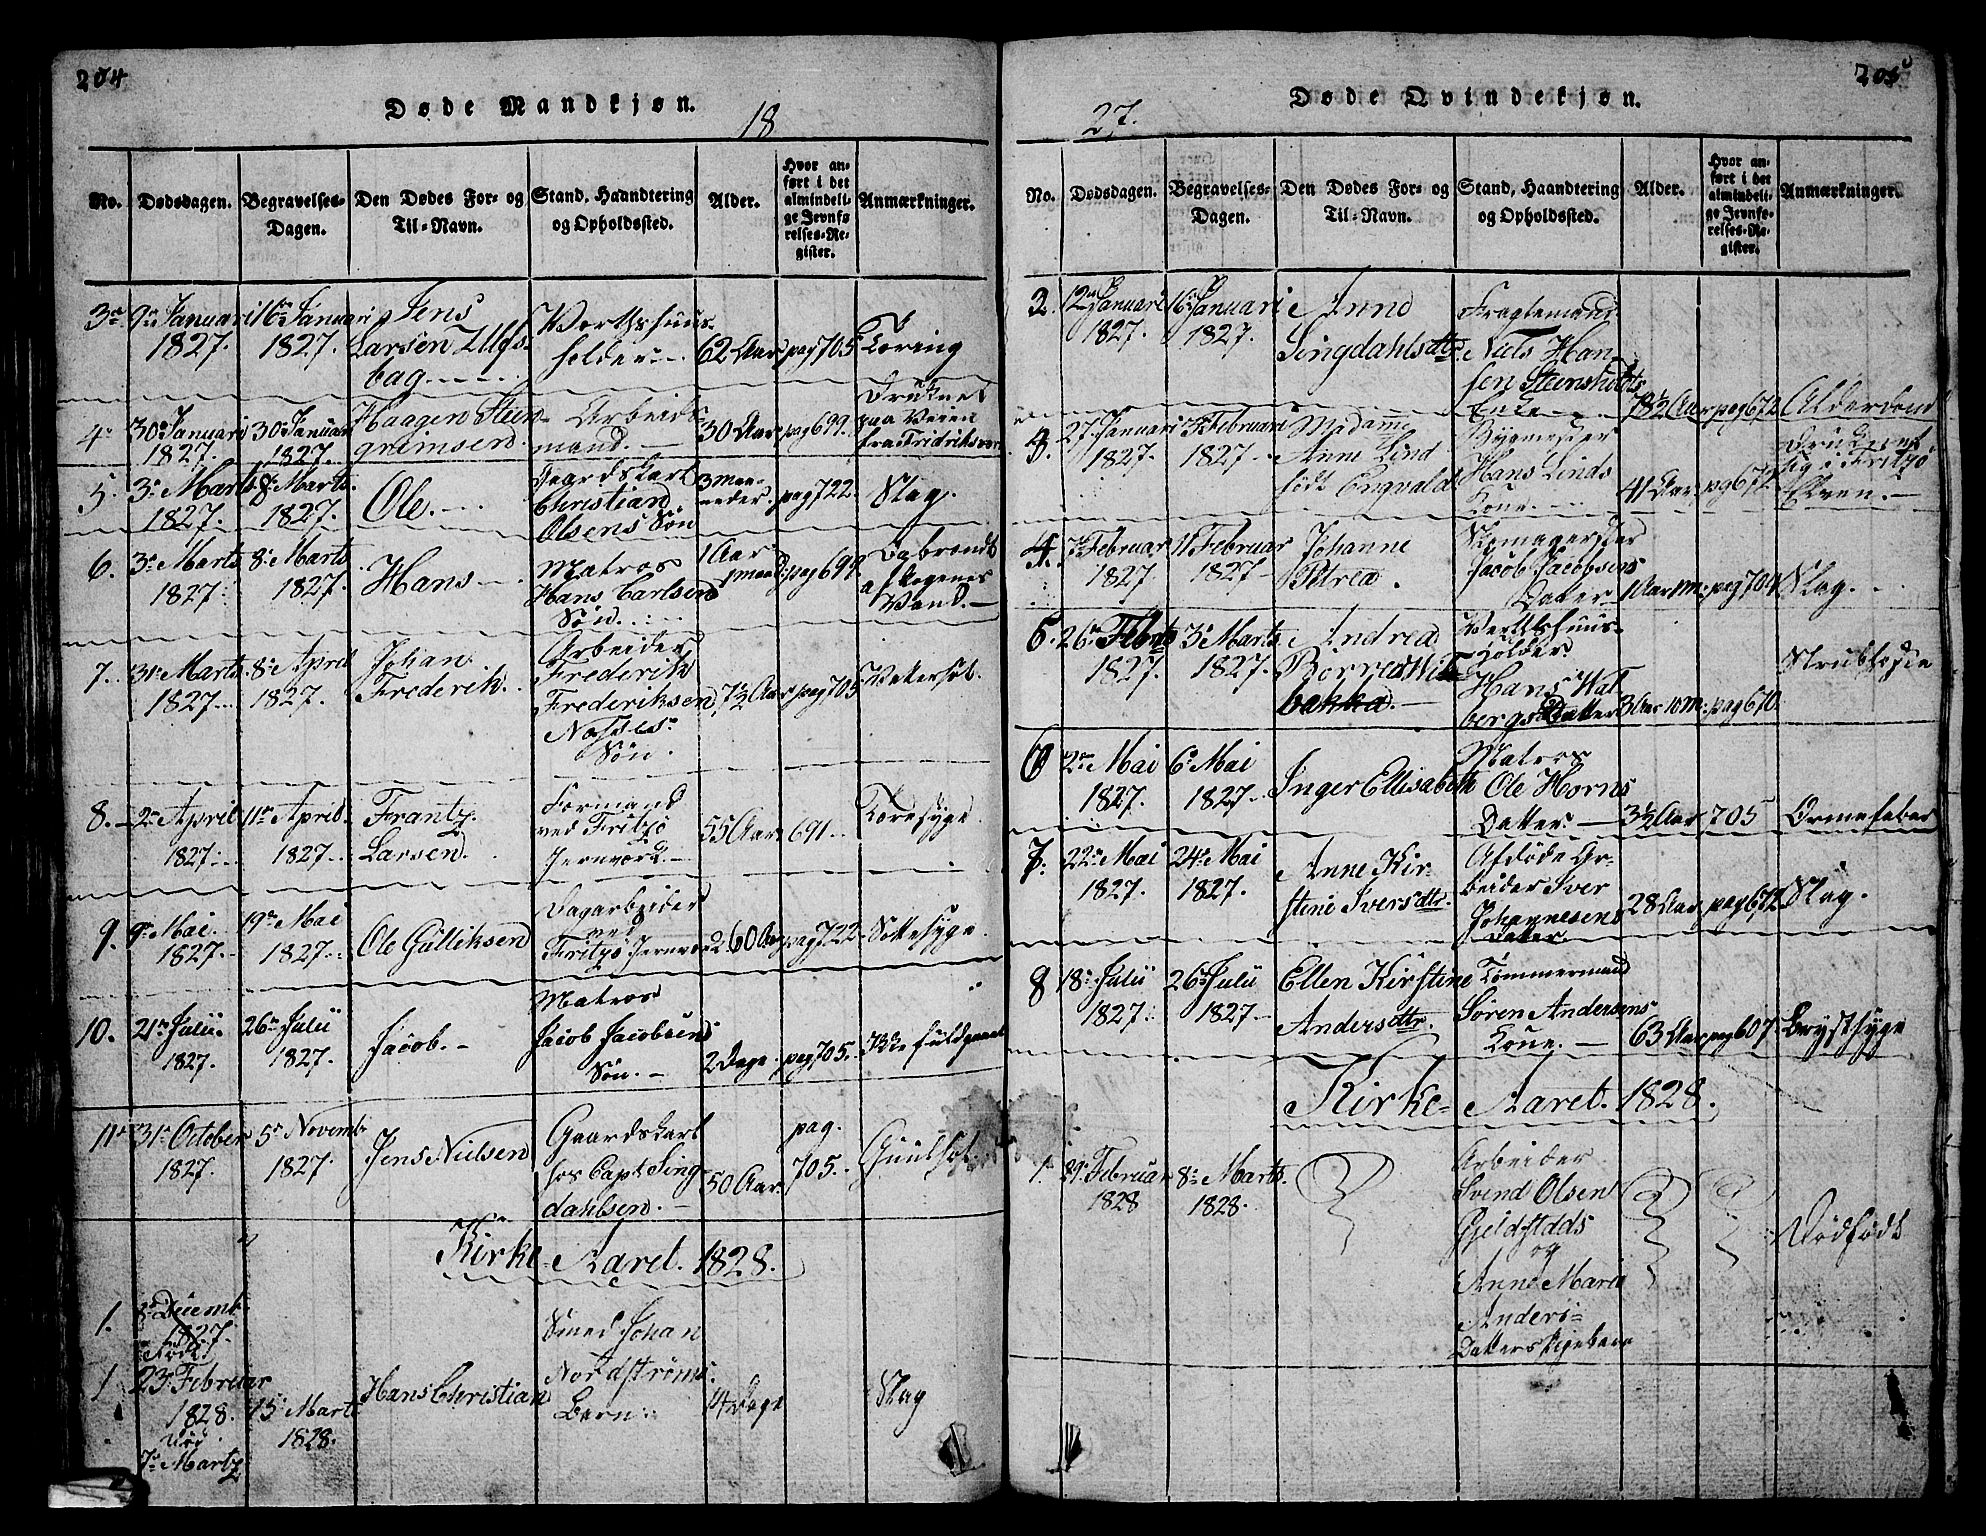 204
Døde Mandkjøn.
18
No.
Dødsdagen.
Begravelses-
Dagen.
Den Dødes For- og
Til-Navn.
Stand, Haandtering
og Opholdssted.
Alder.
Hvor an-
ført i det
almindeli-
ge Jevnfø
relses-Re-
gister.
Anmærkninger.
3. 9 Januari 1827. 16 Januari 1827. Jens
Larsen Ulfs-
bag
Værtshuus-
holder
62 Aar pag 705 Tæring
4 30 Januari 1827. 30 Januari 1827. Haagen Stein-
grimsen
Arbeids-
mand.
30 Aar pag 699. Druknet
paa Veien
fra Fridriksværn
5. 3 Marts 1827. 8 Marts 1827. Ole.
Gaardskarl
Christian
Olsens Søn
3 Maa-
neder. pag 722. Slag.
6. 3 Marts 1827. 8 Marts 1827. Hans
Matros
Hans Carlsens
Søn.
1 Aar
1 maaned pag 699
af kogende
Vand.
7. 31 Marts 1827. 8 April 1827. Johan
Frederik.
Arbeider
Frederik
Frederiksen
Søn.
7½ Aar pag 705 Vattersot.
8. 2 April 1827. 11 April 1827. Frantz
Larsen.
Formand
ved Fritzø
Jernværk.
55 Aar 691. Tæresyge.
9. 9 Mai. 1827. 19 Mai 1827. Ole Gulliksen
Dagarbeider
ved
Fritzø Jernværk
60 Aar pag 722. Sottesyge.
10. 21 Julii. 1827. 26 Julii 1827. Jacob.
Matros
Jacob Jacobsens
Søn.
2 Dage pag 705. Ikke fuldgaaet
11 31 October 1827. 5 Novemb 1827. Jens Nielsen
Gaardskarl
hos Capt Sing
dahlsen.
50 Aar.
pag.
705. Guulsot
Kirke Aaret. 1828.
1. Decemb. 1827.
Født
1 23 Februar
1828.
Død
7 Martz
15 Marts
1828.
Hans Christian
Smed Johan
Nordstrøms
Barn
14 Dage Slag
205
Døde Qvindekjøn.
27.
No.
Dødsdagen.
Begravelses-
Dagen.
Den Dødes For- og
Til-Navn.
Stand, Haandtering
og Opholdssted.
Alder.
Hvor an-
ført i det
almindeli-
ge Jevnfø-
relses-Re-
gister.
Anmærkninger.
2. 12 Januari 1827. 16 Januari 1827. Anne
Singdahlsdttr
Fragtemand
Niels Han-
sen Steensholts
Enke
78½ Aar pag 672 Alderdom
3. 27 Januari 1827. Februari 1827. Madame
Anne Lind
født Engvald
Bygmester
Hans Linds
Kone.
41 Aar. pag 672 Druknet
sig i Fritzø
Elven.
4. 7 Februar 1827. 11 Februar 1827 Johanne
Petrea.
Skomagermester
Jacob Jacobsens
Datter
1 Aar 1 M: pag 700 Slag.
5. 26 Febr. 1827. 3 Marts 1827. Andrea
Vertshuus-
holder
Hans Wal
bergs Datter
3 Aar 10 M: pag 670. Strubehoste
6 2 Mai 1827. 6 Mai 1827. Inger Ellisabeth
Matros
Ole Horns
Datter.
3½ Aar. 705 Ormefeber
7. 22 Mai 1827. 24 Mai 1827. Anne Kir-
stine Iversdttr.
Afdøde Ar-
beider Iver
Johannesens
Datter.
28 Aar pag 672 Slag.
8 18 Julii 1827. 26 Julii 1827. Ellen Kirstine
Andersdttr.
Tømmermand
Søren Andersens
Kone.
63 Aar pag 607 Brystsyge
Kirke- Aaret. 1828.
1. 29 Februar 1828 8 Marts. 1828.
Arbeider
Svend Olsen
Gjeldstads
og
Anne Marie
Anders-
Datters Pigebarn
Dødfødt